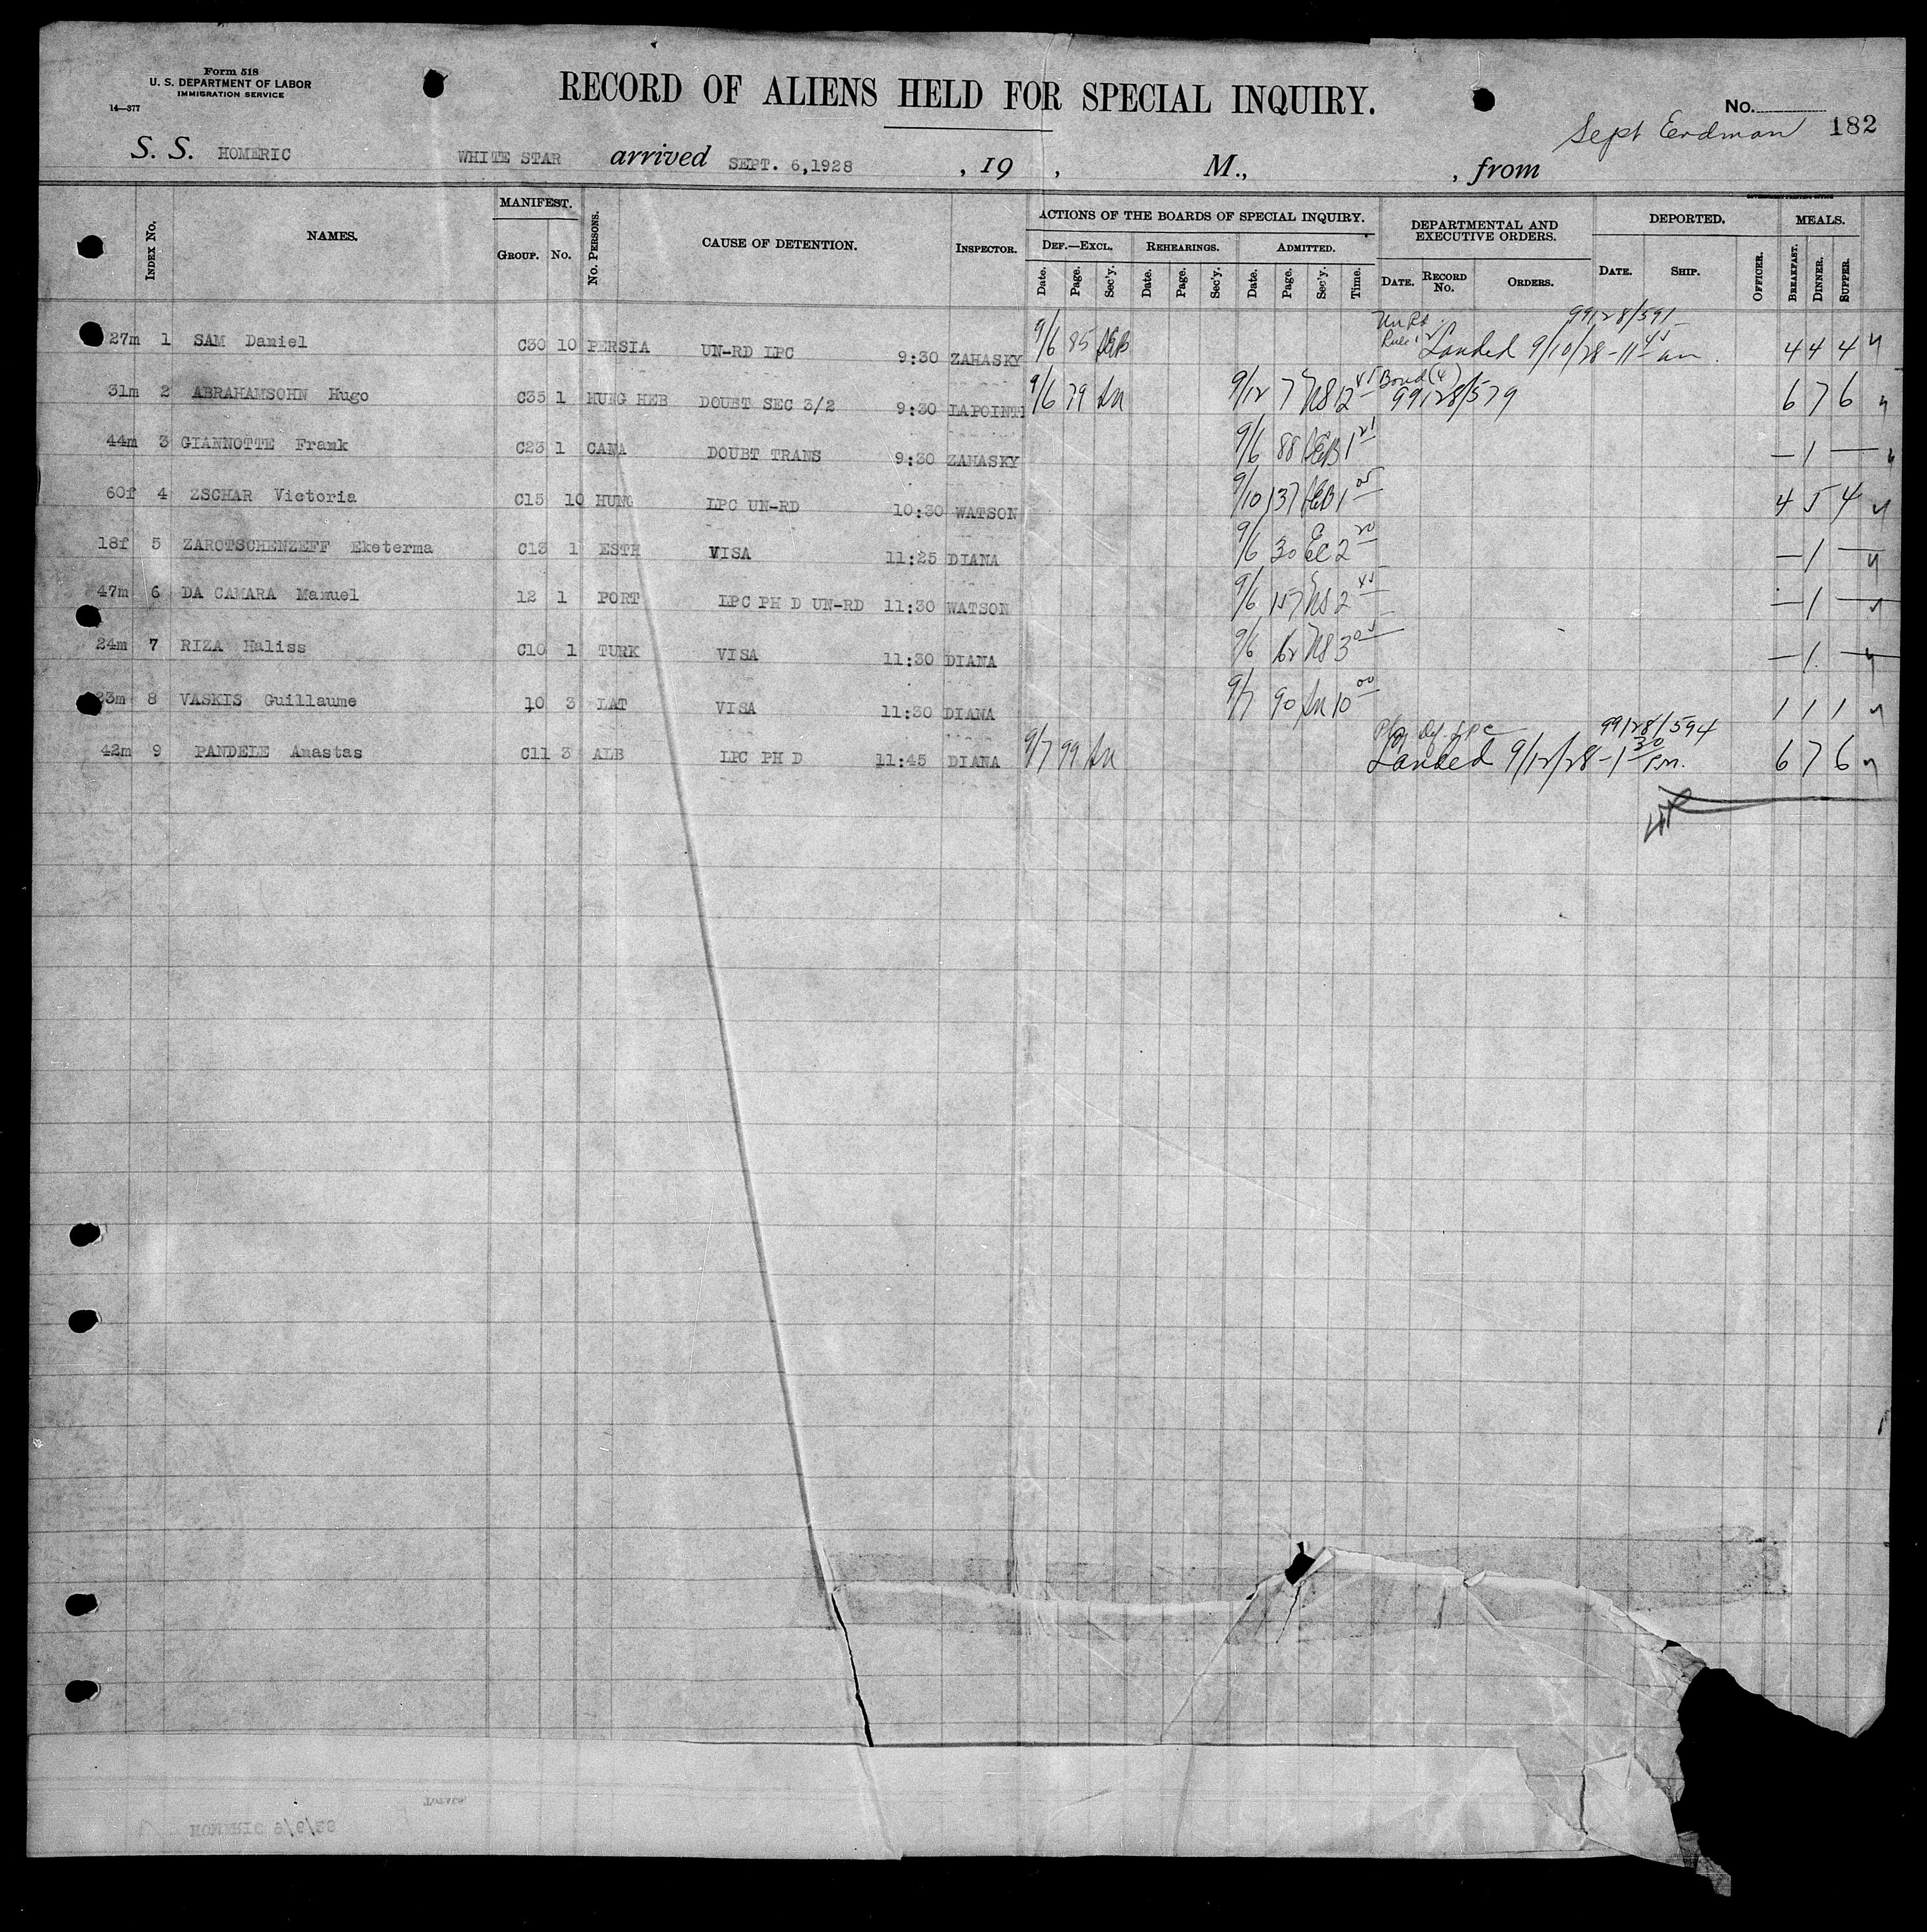 Form 518
U. S. DEPARTMENT OF LABOR
IMMIGRATION SERVICE
14—377
RECORD OF ALIENS HELD FOR SPECIAL INQUIRY.
No. 182
Sept Erdman
S. S. HOMERIC WHITE STAR arrived SEPT. 6,1928 , 19 , M., , from
GOVERNMENT PRINTING OFFICE
INDEX No. NAMES. MANIFEST. GROUP. No. No. PERSONS. CAUSE OF DETENTION. INSPECTOR. ACTIONS OF THE BOARDS OF SPECIAL INQUIRY. DEPARTMENTAL AND EXECUTIVE ORDERS. DEPORTED. MEALS.
DEF.—EXCL. REHEARINGS. ADMITTED.
Date. Page. Sec'y. Date. Page. Sec'y. Date. Page. Sec'y. Time. DATE. RECORD No. ORDERS. DATE. SHIP. OFFICER. BREAKFAST. DINNER. SUPPER.
99128/591
27m 1 SAM Daniel C30 10 PERSIA UN-RD LPC 9:30 ZAHASKY 9/6 85 Landed 9/10/28 - 11 45 am. 4 4 4
31m 2 ABRAHAMSOHN Hugo C35 1 HUNG HEB DOUBT SEC 3/2 9:30 LAPOINTE 9/6 79 9/12 7 NS 12 45 Bond (4) 99128/579 6 7 6
44m 3 GIANNOTTE Frank C23 1 CANA DOUBT TRANS 9:30 ZAHASKY 9/6 88 1 21 — 1 —
60f 4 ZSCHAR Victoria C15 10 HUNG LPC UN-RD 10:30 WATSON 9/10 137 1 05 4 5 4
18f 5 ZAROTSCHENZEFF Eketerma C13 1 ESTH VISA 11:25 DIANA 9/6 30 EC 2 20 — 1 —
47m 6 DA CAMARA Manuel 12 1 PORT LPC PH D UN-RD 11:30 WATSON 9/6 157 NS 2 45 — 1 —
24m 7 RIZA Haliss C10 1 TURK VISA 11:30 DIANA 9/6 162 NS 3 05 — 1 —
23m 8 VASKIS Guillaume 10 3 LAT VISA 11:30 DIANA 9/7 90 10 00 1 1 1
99128/594
42m 9 PANDELE Anastas C11 3 ALB LPC PH D 11:45 DIANA 9/7 99 Landed 9/12/28 - 1 30 P.m. 6 7 6
HOMERIC 9/6/28